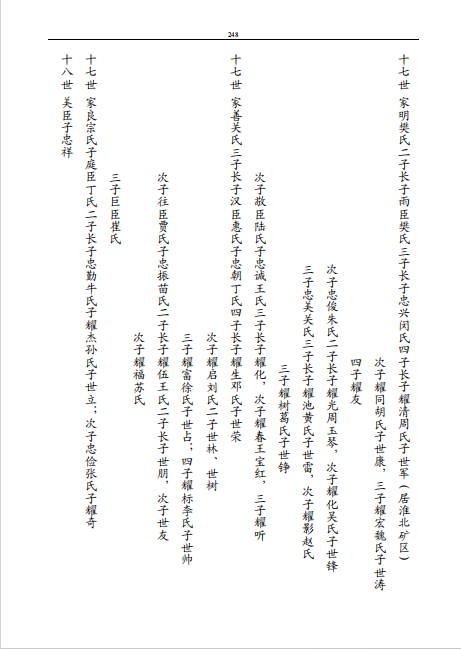 248
十七世 家明樊氏二子长子雨臣樊氏三子长子忠兴闵氏四子长子耀清周氏子世军（居淮北矿区）
次子耀同胡氏子世康，三子耀宏魏氏子世涛
四子耀友
次子忠俊朱氏二子长子耀光周玉琴，次子耀化吴氏子世锋
三子忠美关氏三子长子耀池黄氏子世雷，次子耀影赵氏
三子耀树葛氏子世铮
次子敬臣陆氏子忠诚王氏三子长子耀化，次子耀春王宝红，三子耀听
十七世 家善关氏三子长子汉臣惠氏子忠朝丁氏四子长子耀生邓氏子世荣
次子耀启刘氏二子世林、世树
三子耀富徐氏子世占；四子耀标李氏子世帅
次子往臣贾氏子忠振苗氏二子长子耀伍王氏二子长子世朋，次子世友
次子耀福苏氏
三子巨臣崔氏
十七世 家良宗氏子庭臣丁氏二子长子忠勤牛氏子耀杰孙氏子世立；次子忠俭张氏子耀奇
十八世 关臣子忠祥